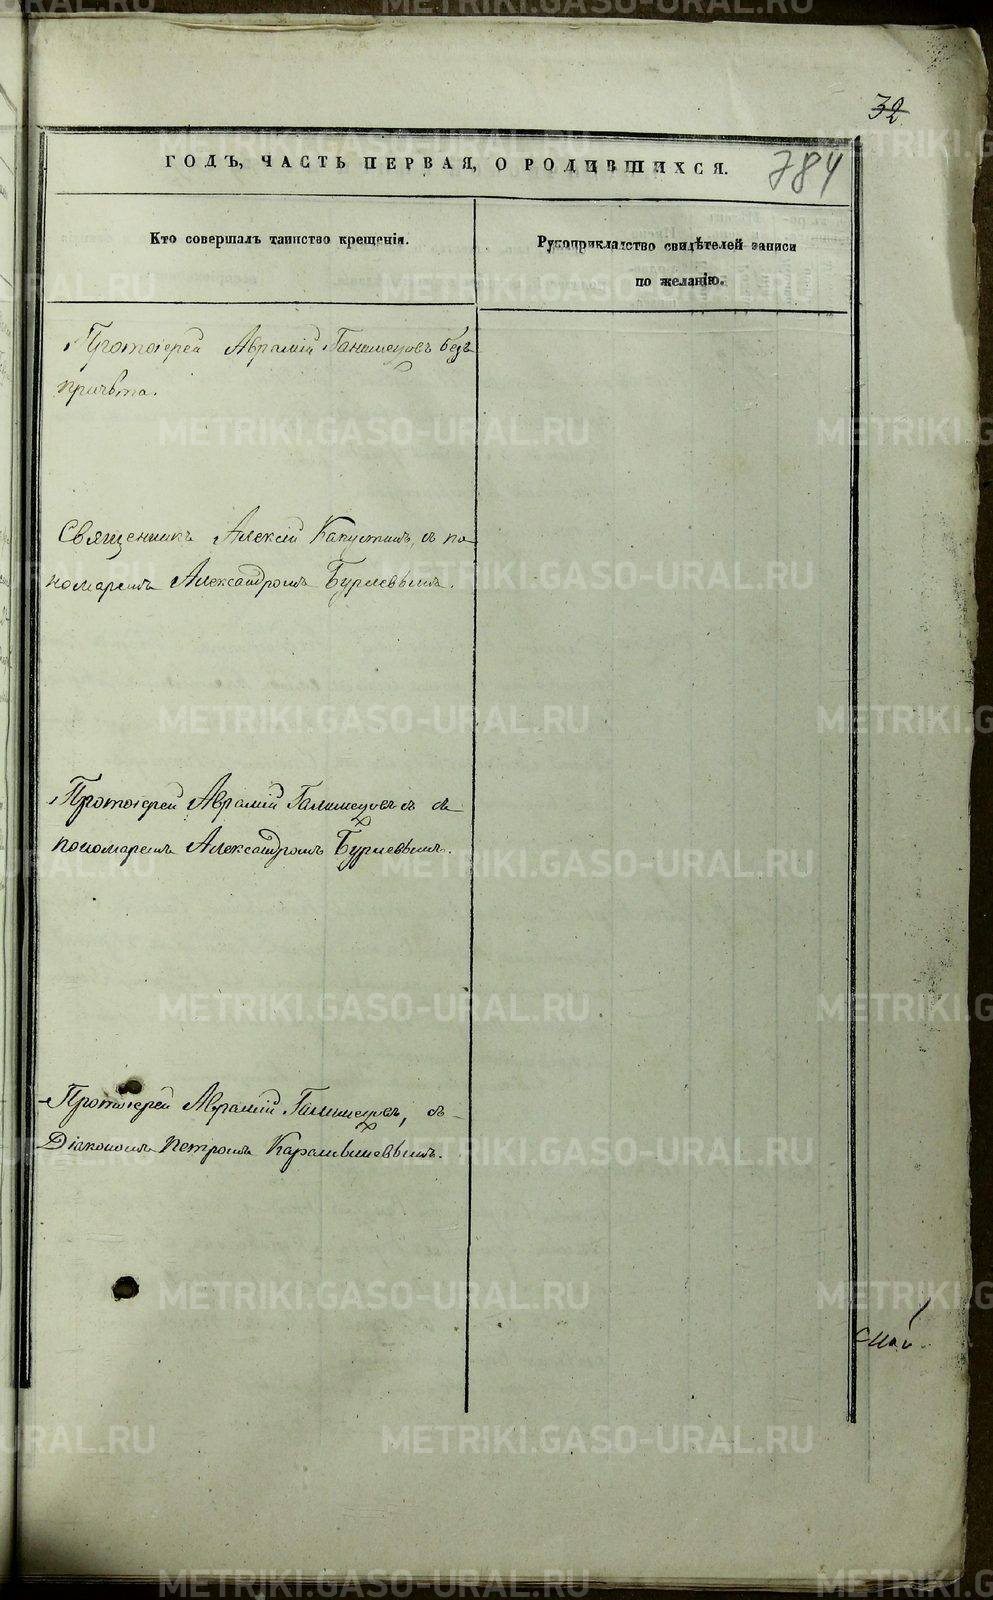 32
784
ГОДЪ, ЧАСТЬ ПЕРВАЯ, О РОДИВШИХСЯ.
Кто совершалъ таинство крещенія.
Рукоприкладство свидѣтелей записи
по желанію.
Протоіерей Аврамій Галишевъ безъ
причта.
Священникъ Алексій Капустинъ, съ по
номаремъ Александромъ Бурлевымъ.
Протоіерей Аврамій съ
пономаремъ Александромъ Бурлевымъ.
Протоіерей Аврамій съ
Діакономъ Петромъ
METRIKI.GASO-URAL.RU